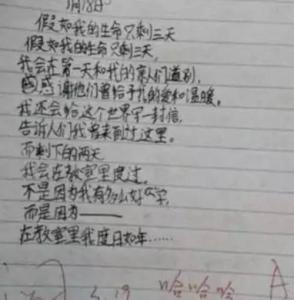 月18日
假如我的生命只剩三天
假如我的生命只剩三天,
我会在第一天和我的亲人们道别,
感谢他们曾给予我的爱和温暖。
我还会给这个世界写一封信,
告诉人们我曾来到过这里。
而剩下的两天
我会在教室里度过,
不是因为我有多么好学,
而是因为——
在教室里我度日如年……
哈哈哈 A